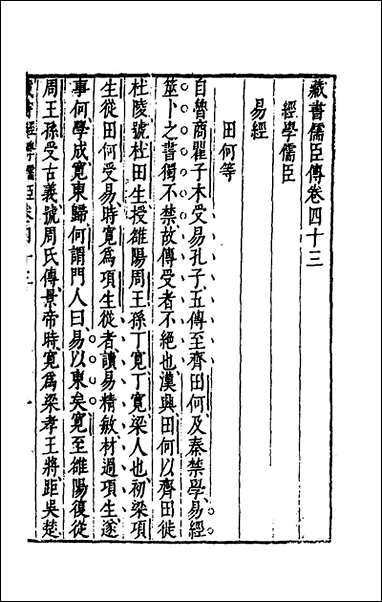 藏書儒臣傳卷四十三
經學儒臣
易經
田何等
自魯商瞿子木受易孔子五傳至齊田何及秦禁學易經
筮卜之書獨不禁故傳受者不絕也漢興田何以齊田徙
杜陵號杜田生授雒陽周王孫丁寬丁寬梁人也初梁項
生從田何受易時寬爲項生從者讀易精敏材過項生遂
事何學成寬東歸何謂門人曰易以東矣寬至雒陽復從
周王孫受古義號周氏傳景帝時寬爲梁孝王將距吳楚